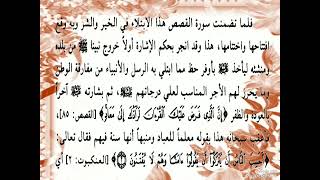 فلما تضمنت سورة القصص هذا الابتلاء في الخير والشر وبه وقع
افتتاحها واختتامها، هذا وقد انجر بحكم الإشارة أولاً خروج نبينا ﷺ من بلده
ومنشئه ليأخذ ﷺ بأوفر حظ مما ابتلي به الرسل والأنبياء من مفارقة الوطن
وما يحرز لهم الأجر المناسب لعلي درجاتهم ﷺ، ثم بشارته ﷺ آخراً
بالعودة والظفر ﴿إِنَّ ٱلَّذِى فَرَضَ عَلَيْكَ ٱلْقُرْءَانَ لَرَآدُّكَ إِلَىٰ مَعَادٍ﴾ [القصص: ٨٥]،
فأعقب سبحانه هذا بقوله معلماً للعباد ومنبهاً أنها سنة فيهم فقال تعالى:
﴿أَحَسِبَ ٱلنَّاسُ أَن يُتْرَكُوٓا۟ أَن يَقُولُوٓا۟ ءَامَنَّا وَهُمْ لَا يُفْتَنُونَ﴾ [العنكبوت: ٢] أي